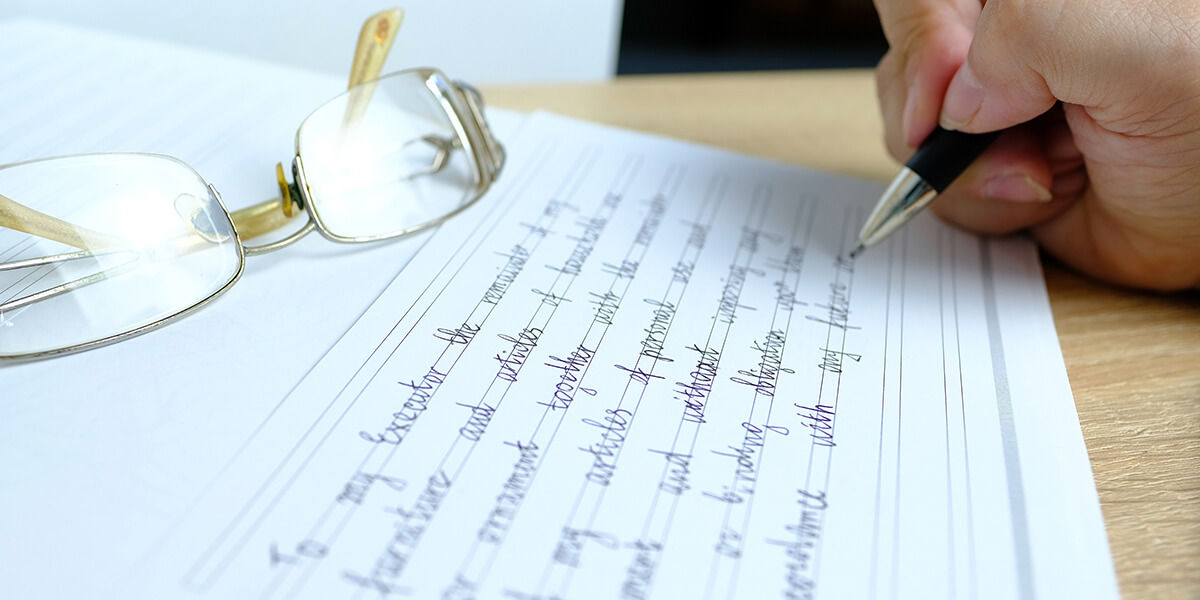 To my Executor the remainder of my
furniture and articles of household use
or ornament together with the remainder
my articles of personal use and
ment and without imposing any
or binding obligation upon them
accordance with my future